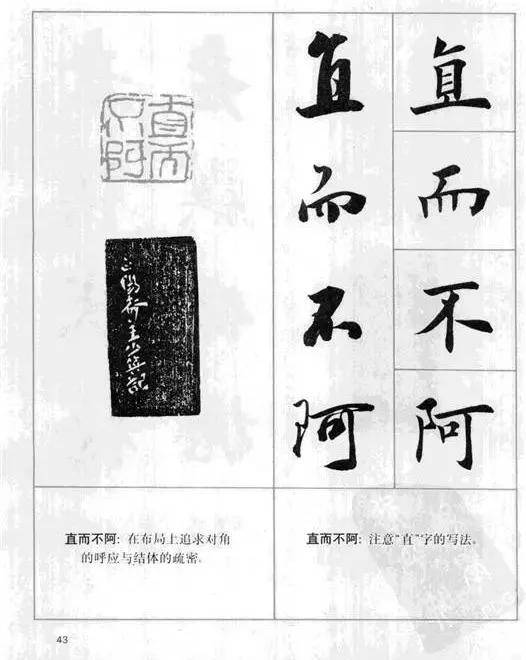 直而
不阿
直而不阿
直而不阿
直而不阿: 在布局上追求对角
的呼应与结体的疏密。
直而不阿: 注意“直”字的写法。
43